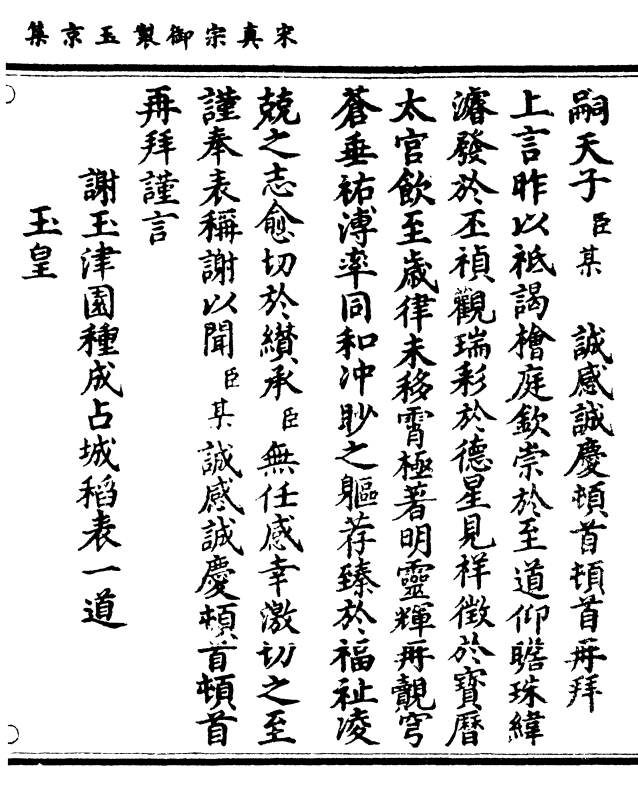 宋真宗御製玉京集
嗣天子臣某　誠感誠慶頓首頓首再拜
上言昨以祗謁檜庭欽崇於至道仰瞻珠緯
濬發於丕禎觀瑞彩於德星見祥徵於寶曆
太官飲至歲律未移霄極著明靈輝再覿穹
蒼垂祐溥率同和冲眇之軀荐臻於福祉凌
兢之志愈切於纘承臣無任感幸激切之至
謹奉表稱謝以聞臣某誠感誠慶頓首頓首
再拜謹言
謝玉津園種成占城稻表一道
玉皇